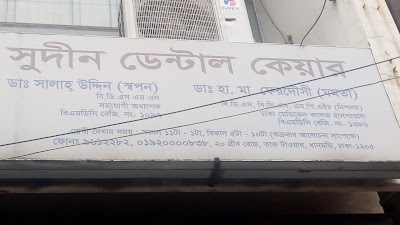 সুদীন ডেন্টাল কেয়ার
ডাঃ সালাহ্ উদ্দিন (স্বপন)
বি.ডি.এস এম এস
সহযোগী অধ্যাপক
বিএমডিসি রেজি. নং-
ডাঃ হা. মা ফেরদৌসী (মমতা)
বি.ডি.এস, বি.সি.এস, এম.পি.এইচ (নিপসম)
ঢাকা মেডিকেল কলেজ হাসপাতাল
বিএমডিসি রেজি. নং- ১৩৮৬
রোগী দেখার সময় - সকাল ১১টা - ১টা, বিকাল ৫টা - ১০টা (শুক্রবার আলোচনা সাপেক্ষে)
ফোনঃ ৯৬১২২৮২, ০১৯২০০০০৮৩৮, ২০ গ্রীন রোড, তাজ টাওয়ার, ধানমন্ডি, ঢাকা-১২০৫